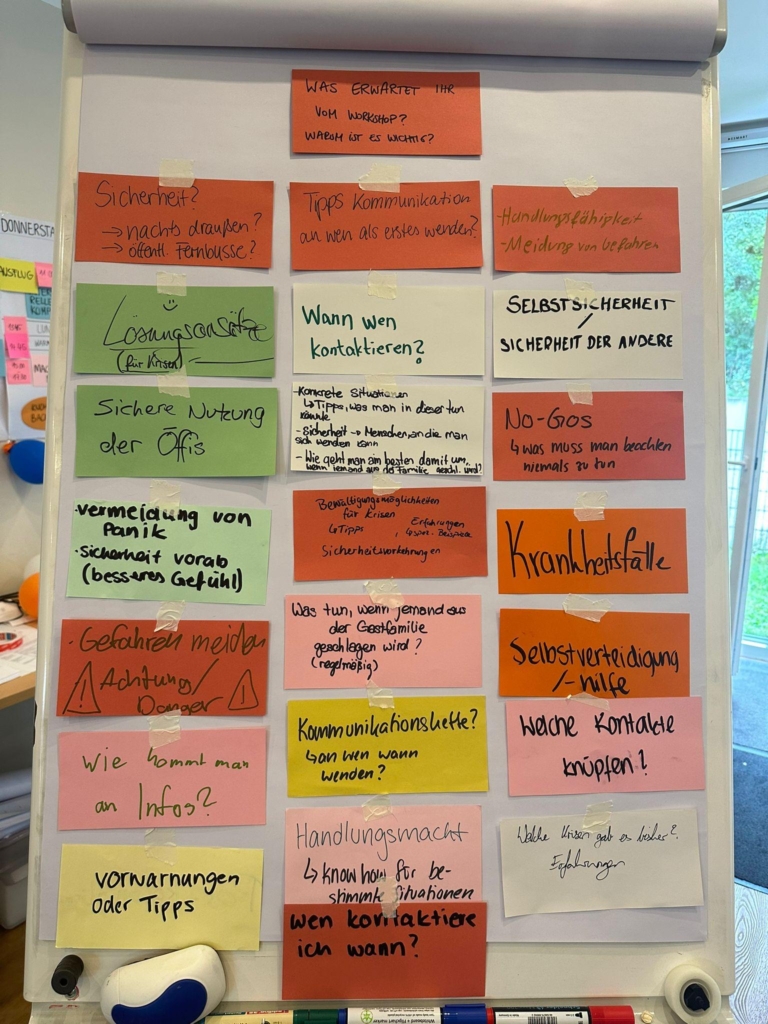 WAS ERWARTET IHR
VOM WORKSHOP?
WARUM IST ES WICHTIG?
Sicherheit?
→ nachts draußen?
→ öffentl. Fernbusse?
Lösungsansätze
(für Krisen)
Sichere Nutzung
der Öffis
·vermeidung von
Panik
·sicherheit vorab
(besseres Gefühl)
·Gefahren meiden
Achtung/
Danger
wie kommt man
an Infos?
vorwarnungen
oder Tipps
Tipps Kommunikation
an wen als erstes wenden?
Wann wen
kontaktieren?
Konkrete Situationen
↳Tipps, was man in dieser tun
könnte
-Sicherheit → Menschen, an die man
sich wenden kann
- Wie geht man am besten damit um,
wenn jemand aus der Familie geschl. wird?
Bewältigungsmöglichkeiten
für Krisen
↳Tipps, Erfahrungen
↳spez. Beispiele
Sicherheitsvorkehrungen
Was tun, wenn jemand aus
der Gastfamilie
geschlagen wird?
(regelmäßig)
Kommunikationskette?
↳an wen wann
wenden?
Handlungsmacht
↳ know how für be-
stimmte Situationen
wen kontaktiere
ich wann?
-Handlungsfähigkeit
-Meidung von Gefahren
SELBSTSICHERHEIT
/
SICHERHEIT DER ANDERE
No-Gos
↳was muss man beachten
niemals zu tun
Krankheitsfälle
Selbstverteidigung
/-hilfe
Welche Kontakte
knüpfen?
Welche Krisen gab es bisher?
Erfahrungen
DONNERSTA